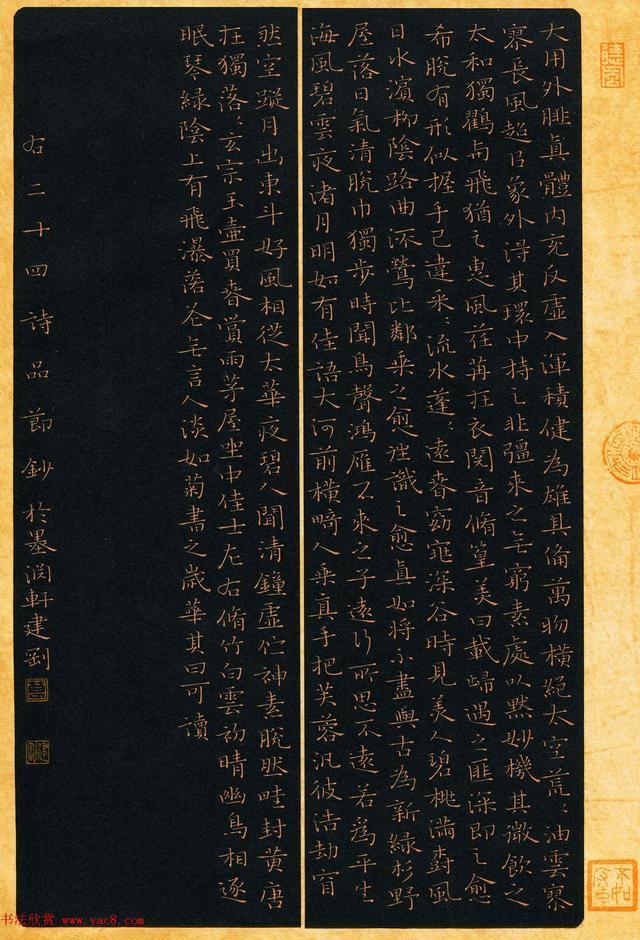 大用外腓眞體內充反虛入渾積健為雄具備萬物橫絕太空荒〻油雲寥
寥長風超以象外得其環中持之非彊來之无窮素處以默妙機其微飲之
太和獨鶴與飛猶之惠風荏苒在衣閱音脩篁美曰載歸遇之匪深即之愈
希脫有形似握手已違采〻流水蓬〻遠春窈窕深谷時見美人碧桃滿樹風
日水濱柳陰路曲流鶯比鄰乘之愈往識之愈眞如將不盡與古為新綠杉野
屋落日氣清脫巾獨步時聞鳥聲鴻雁不來之子遠行所思不遠若爲平生
海風碧雲夜渚月明如有佳語大河前橫畸人乘眞手把芙蓉汎彼浩劫窅
然空蹤月出東斗好風相從太華夜碧人聞清鐘虛佇神素脫然畦封黃唐
在獨落〻玄宗玉壺買春賞雨茅屋坐中佳士左右脩竹白雲初晴幽鳥相逐
眠琴綠陰上有飛瀑落花无言人淡如菊書之歲華其曰可讀
右二十四詩品節鈔於墨潤軒建剛
书法欣赏 www.yac8.com